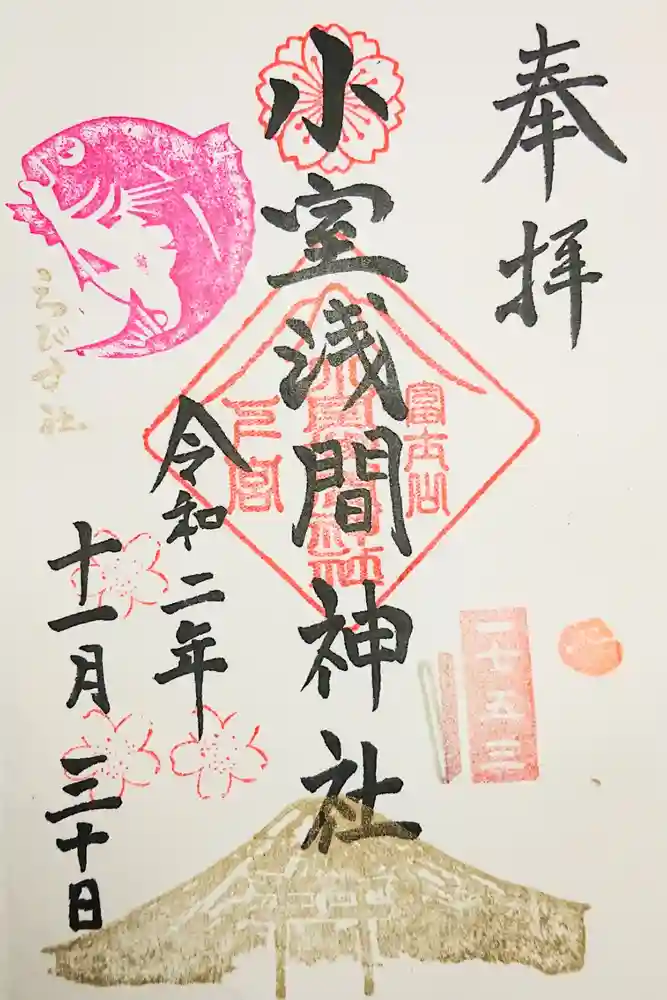 奉拝
小室浅間神社
富士山
下宮
小室浅間神社
令和二年
十一月三十日
えびす社